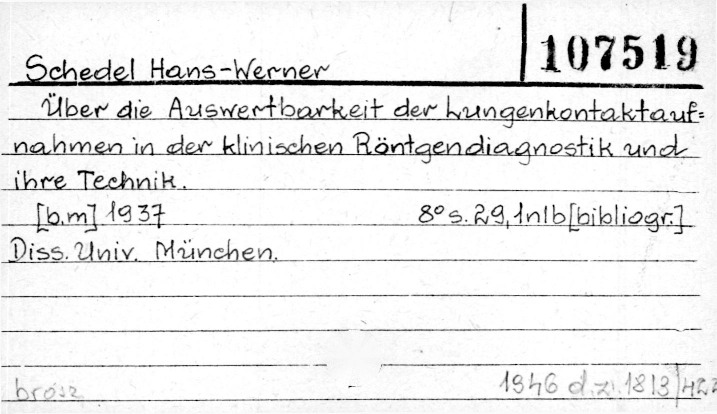 107519
Schedel Hans-Werner
Über die Auswertbarkeit der Lungenkontaktauf=
nahmen in der klinischen Röntgendiagnostik und
ihre Technik.
[b.m] 1937 8° s. 29, 1nlb [bibliogr.]
Diss. Univ. München.
brosz
1946 d.z. 1813/423